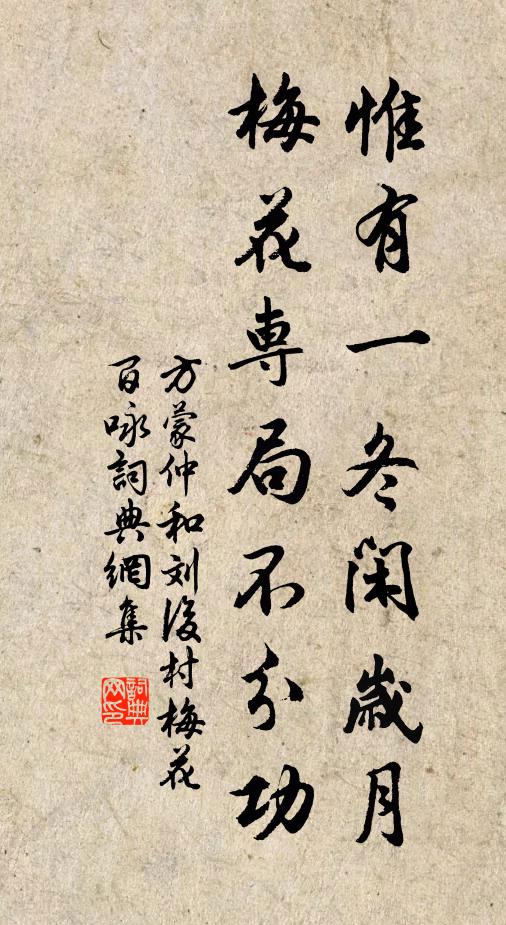 惟有一冬閑歲月
梅花專局不分功
方蒙仲和刘後村梅花
百咏詞典網集
詞典
网印